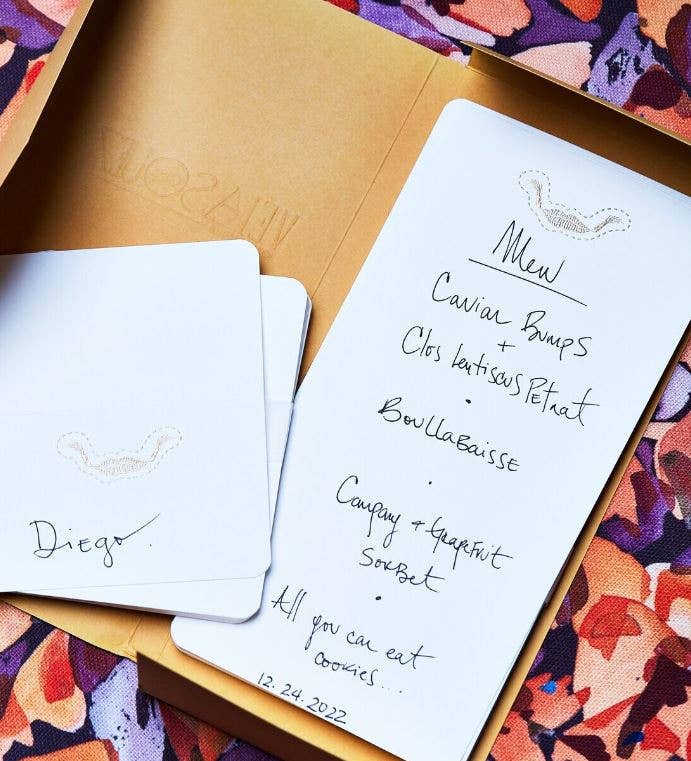 Menu
Caviar Bumps
+
Clos Lentiscus PETnat
•
BoullaBaisse
•
Campany + GrapeFruit
SorBet
•
All you can eat
cookies...
12.24.2022
Diego.